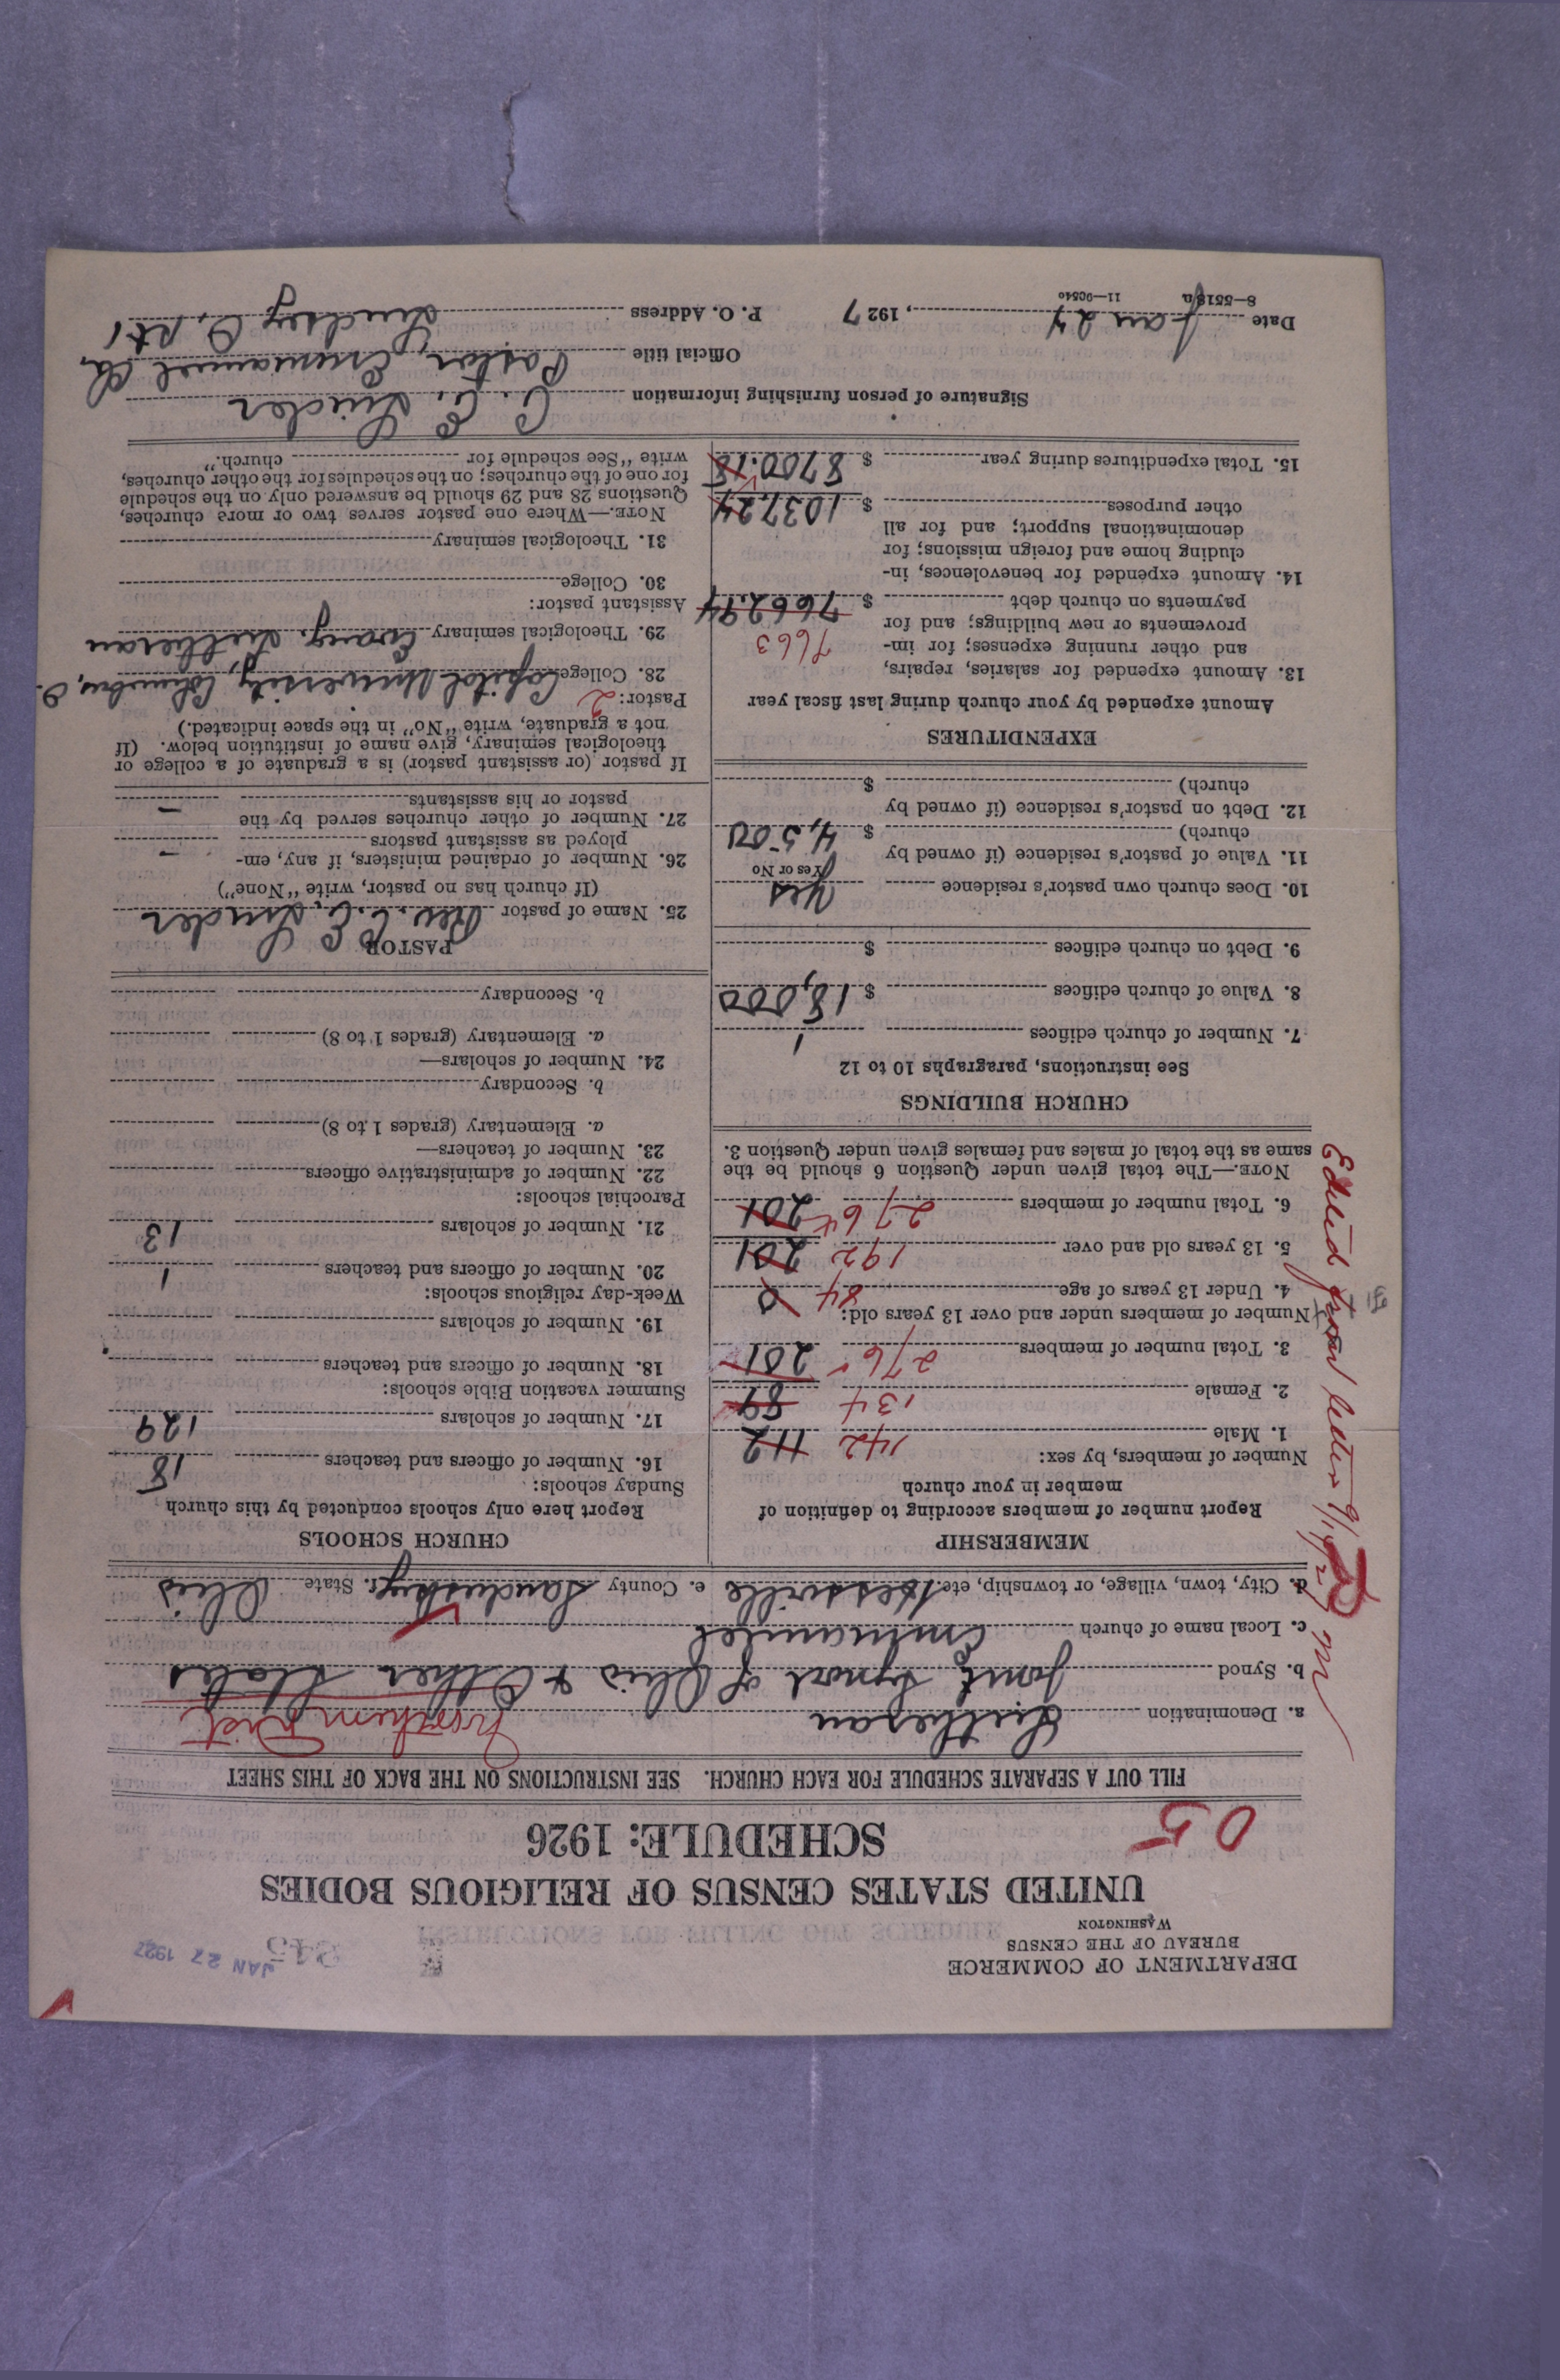 DEPARTMENT OF COMMERCE
BUREAU OF THE CENSUS
WASHINGTON
JAN 27 1927
UNITED STATES CENSUS OF RELIGIOUS BODIES
SCHEDULE: 1926
05
FILL OUT A SEPARATE SCHEDULE FOR EACH CHURCH. SEE INSTRUCTIONS ON THE BACK OF THIS SHEET
a. Denomination Lutheran Northern Dist
b. Synod Joint Synod of Ohio & Other States
c. Local name of church Emmanuel
d. City, town, village, or township, etc. Hessville e. County Sandusky State Ohio
MEMBERSHIP
Report number of members according to definition of
member in your church
Number of members, by sex:
1. Male 142 112
2. Female 134 89
3. Total number of members 276 201
Number of members under and over 13 years old:
4. Under 13 years of age 84 0
5. 13 years old and over 192 201
6. Total number of members 276 201
NOTE.—The total given under Question 6 should be the
same as the total of males and females given under Question 3.
CHURCH BUILDINGS
See instructions, paragraphs 10 to 12
7. Number of church edifices 1
8. Value of church edifices $ 18,000
9. Debt on church edifices $
10. Does church own pastor's residence Yes
Yes or No
11. Value of pastor's residence (if owned by
church) $ 4,500
12. Debt on pastor's residence (if owned by
church) $
EXPENDITURES
Amount expended by your church during last fiscal year
13. Amount expended for salaries, repairs,
and other running expenses; for im-
provements or new buildings; and for
payments on church debt $ 7662.94
7663
14. Amount expended for benevolences, in-
cluding home and foreign missions; for
denominational support; and for all
other purposes $ 1037.24
15. Total expenditures during year $ 8700.18
CHURCH SCHOOLS
Report here only schools conducted by this church
Sunday schools:
16. Number of officers and teachers 18
17. Number of scholars 129
Summer vacation Bible schools:
18. Number of officers and teachers
19. Number of scholars
Week-day religious schools:
20. Number of officers and teachers 1
21. Number of scholars 13
Parochial schools:
22. Number of administrative officers
23. Number of teachers—
a. Elementary (grades 1 to 8)
b. Secondary
24. Number of scholars—
a. Elementary (grades 1 to 8)
b. Secondary
PASTOR
25. Name of pastor Rev. C. E. Linder
(If church has no pastor, write "None")
26. Number of ordained ministers, if any, em-
ployed as assistant pastors –
27. Number of other churches served by the
pastor or his assistants –
If pastor (or assistant pastor) is a graduate of a college or
theological seminary, give name of institution below. (If
not a graduate, write "No" in the space indicated.)
Pastor: 2
28. College Capital University, Columbus, O.
29. Theological seminary Evang. Lutheran
Assistant pastor:
30. College
31. Theological seminary
NOTE.—Where one pastor serves two or more churches,
Questions 28 and 29 should be answered only on the schedule
for one of the churches; on the schedules for the other churches,
write "See schedule for church."
Signature of person furnishing information C. E. Linder
Official title Pastor, Emmanuel Ch.
Date Jan 24, 1927 P. O. Address Lindsey O, Rt 1
8—5518a 11—9054o
Edited from letter